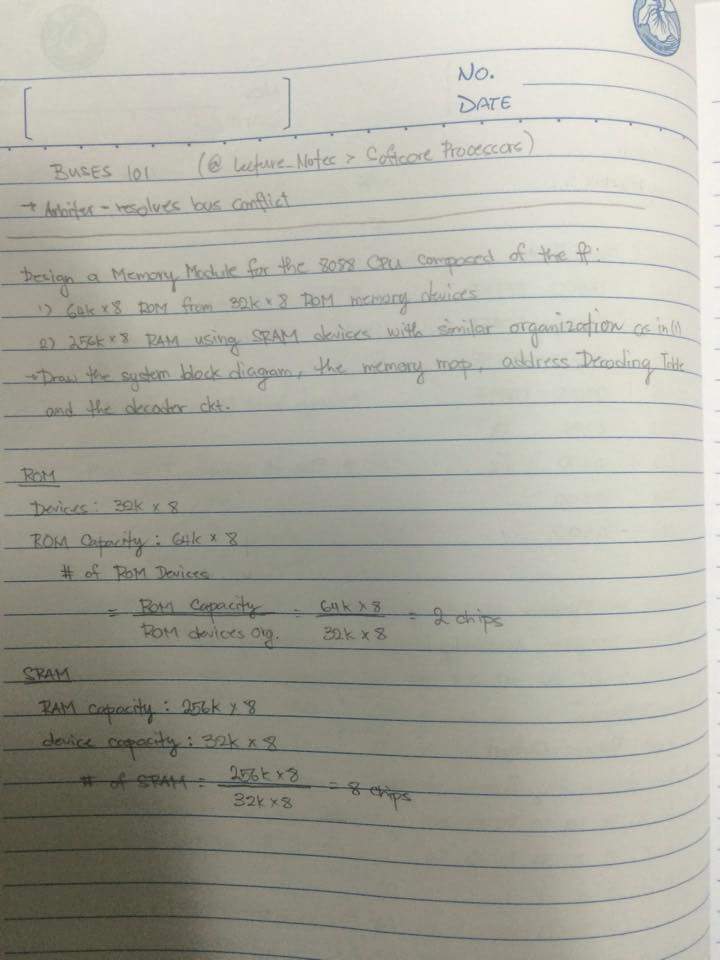 NO.
DATE
BUSES 101 (@ Lecture_Notes > Softcore Processors)
→ Arbiter - resolves bus conflict
Design a Memory Module for the 8088 CPU composed of the ff:
1) 64k x 8 ROM from 32k x 8 ROM memory devices
2) 256k x 8 RAM using SRAM devices with similar organization as in (1)
→ Draw the system block diagram, the memory map, address Decoding Table
and the decoder ckt.
ROM
Devices: 32k x 8
ROM Capacity: 64k x 8
# of ROM Devices
= ROM Capacity / ROM devices Org. = 64k x 8 / 32k x 8 = 2 chips
SRAM
RAM capacity: 256k x 8
device capacity: 32k x 8
# of SRAM = 256k x 8 / 32k x 8 = 8 chips